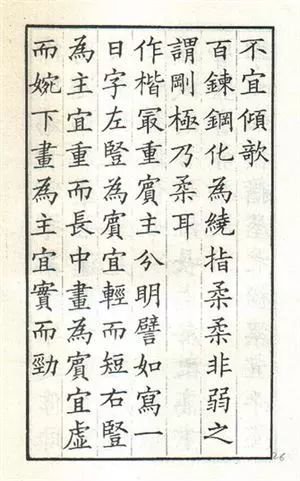 不宜傾欹
百鍊鋼化為繞指柔柔非弱之
謂剛極乃柔耳
作楷冣重賓主分明譬如寫一
日字左豎為賓宜輕而短右豎
為主宜重而長中畫為賓宜虛
而婉下畫為主宜實而勁
26